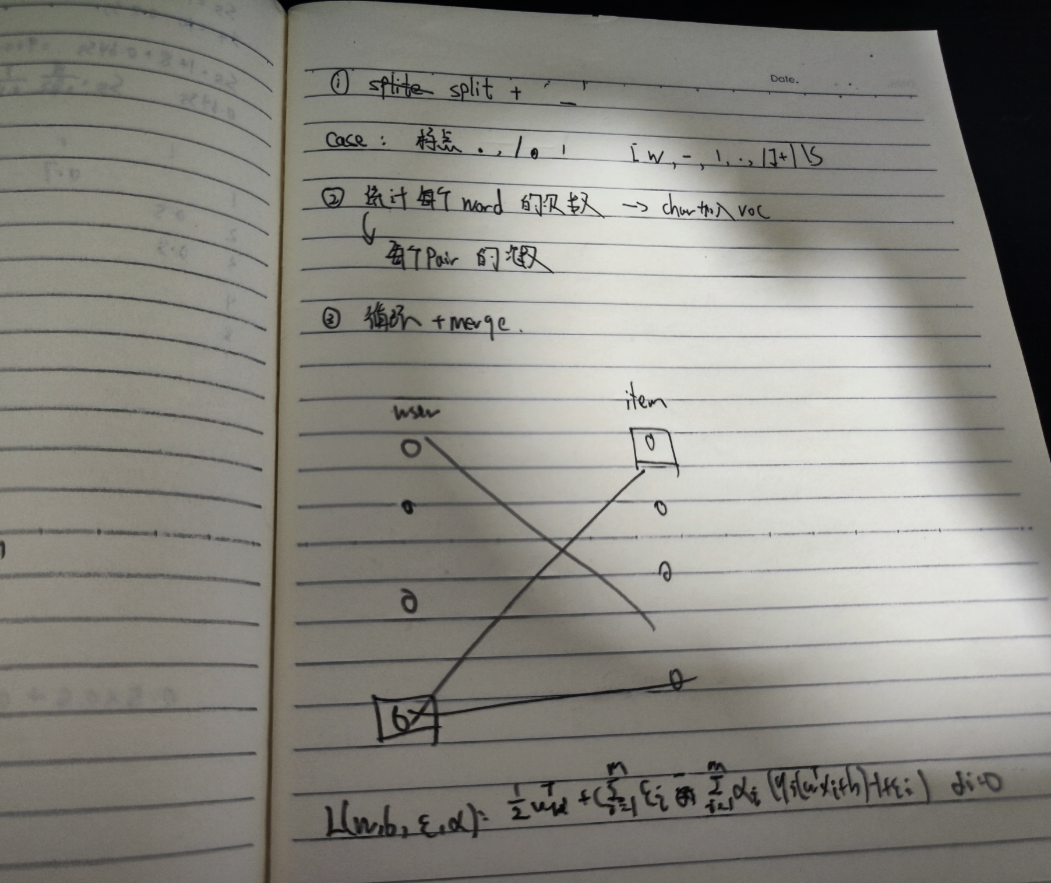 Date.
① splite split + ' ' _
case : 标点 . , / 。 ! [ w, -, !, ., /]+|\S
② 统计每个 word 的次数 → char加入 voc
每个 Pair 的次数
③ 循环 + merge.
user item
L(w,b,ξ,α)= 1/2 wᵀw + C Σ_{i=1}^{m} ξi - Σ_{i=1}^{m} αi (yi(wᵀxi+b)-1+ξi) αi≥0